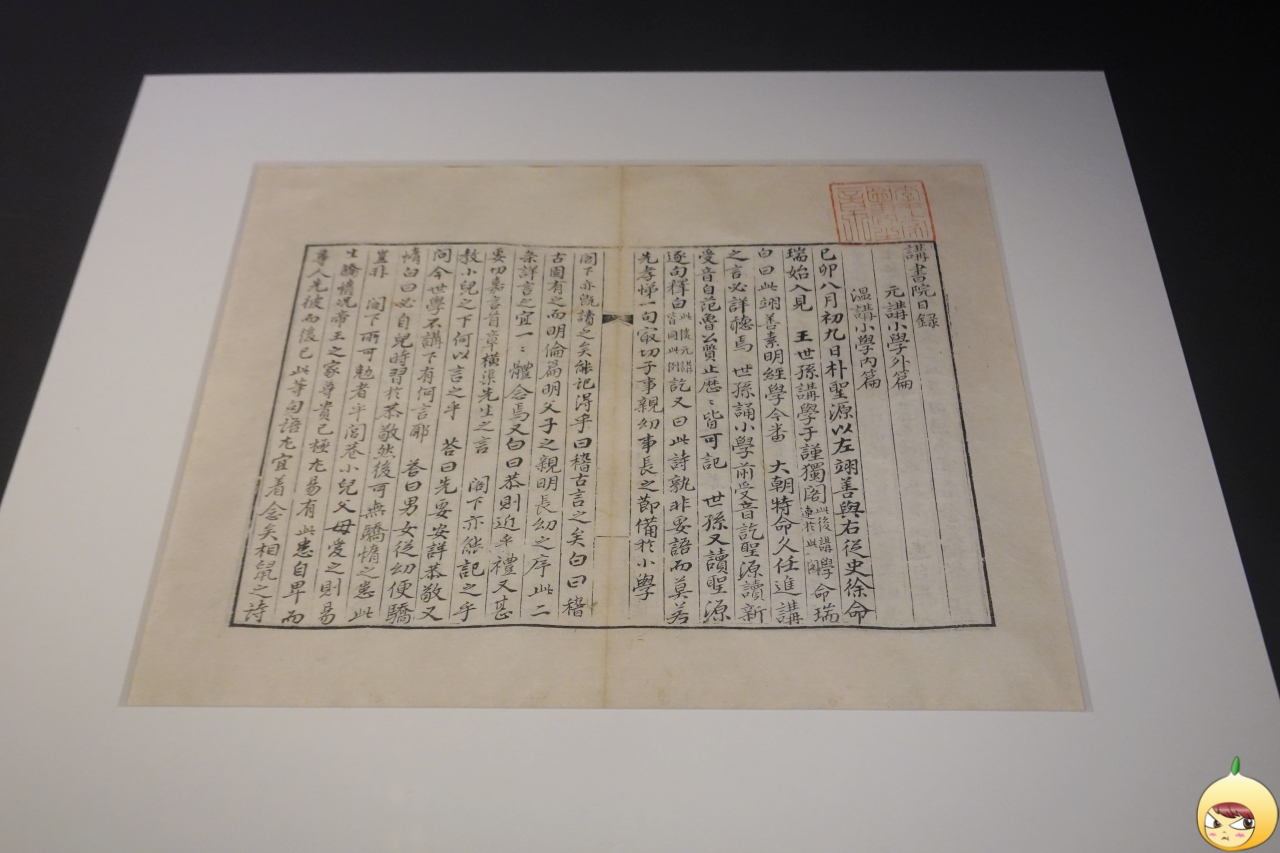 講書院日錄
元講小學外篇
溫講小學內篇
己卯八月初九日朴聖源以左翊善與右從史徐命
瑞始入見 王世孫講學于謹獨閤此後講學連於此閤命瑞
白曰此翊善素明經學今番 大朝特命久任進講
之言必詳聽焉 世孫誦小學前受音訖聖源讀新
受音自范魯公質止歷〻皆可記 世孫又讀聖源
逐句釋白此後元講皆同此例訖又曰此詩孰非要語而莫若
先孝悌一句最切子事親幼事長之節備於小學
閤下亦旣講之矣能記得乎曰稽古言之矣白曰稽
古固有之而明倫篇明父子之親明長幼之序此二
條詳言之宜一〻體念焉又白曰恭則近乎禮又甚
要切嘉言首章橫渠先生之言 閤下亦能記之乎
敎小兒之下何以言之乎 答曰先要安詳恭敬又
問今世學不講下有何言耶 答曰男女從幼便驕
惰白曰必自兒時習於恭敬然後可無驕惰之患此
豈非 閤下所可勉者乎閭巷小兒父母愛之則易
生驕惰况帝王之家尊貴已極尤易有此患自卑而
尊人先彼而後已此等句語尤宜着念矣相鼠之詩